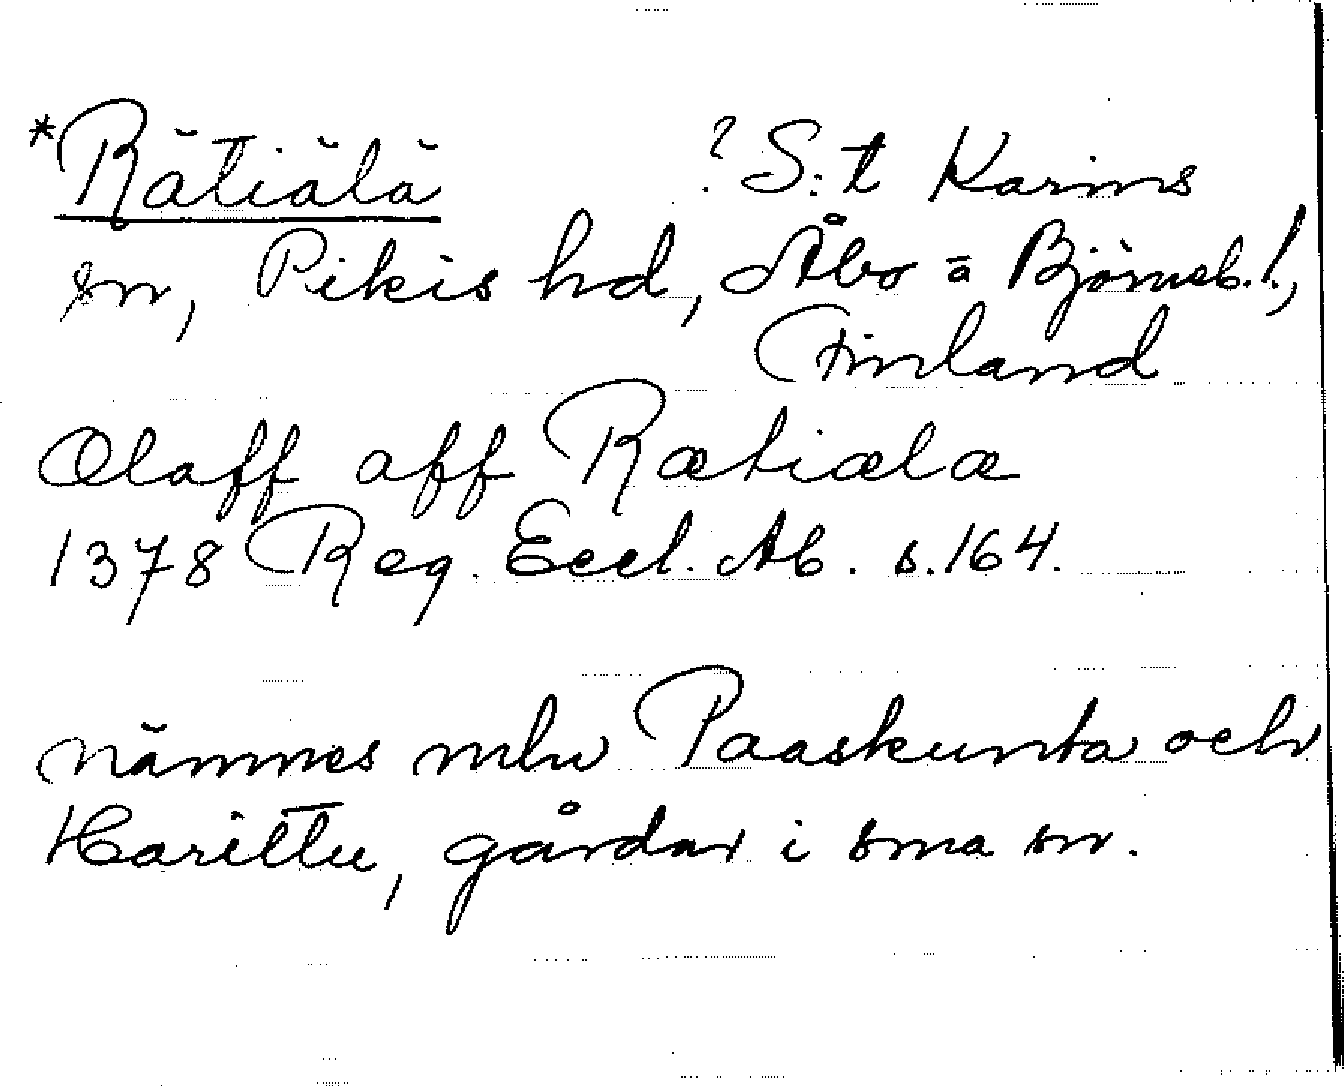 *Rätiälä ? S:t Karins
sn, Pikis hd, Åbo o Björneb. l.,
Finland
Olaff aff Rætiælæ
1378 Reg. Eccl. Ab. s. 164.
nämnes mln Paaskunta och
Harittu, gårdar i sma sn.